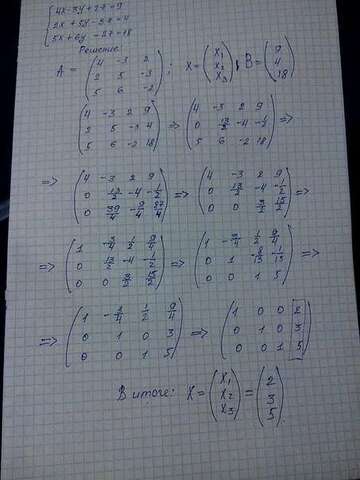 4x-3y+2z=9
2x+5y-3z=4
5x+6y-2z=18
Решение:
A = (4 -3 2; 2 5 -3; 5 6 -2); X = (x₁; x₂; x₃), B = (9; 4; 18)
(4 -3 2 9; 2 5 -3 4; 5 6 -2 18) => (4 -3 2 9; 0 13/2 -4 -1/2; 5 6 -2 18) =>
=> (4 -3 2 9; 0 13/2 -4 -1/2; 0 39/4 -9/4 27/4) => (4 -3 2 9; 0 13/2 -4 -1/2; 0 0 3/2 15/2) =>
=> (1 -3/4 1/2 9/4; 0 13/2 -4 -1/2; 0 0 3/2 15/2) => (1 -3/4 1/2 9/4; 0 1 -8/13 -1/13; 0 0 1 5) =>
=> (1 -3/4 1/2 9/4; 0 1 0 3; 0 0 1 5) => (1 0 0 2; 0 1 0 3; 0 0 1 5)
В итоге: X = (x₁; x₂; x₃) = (2; 3; 5)